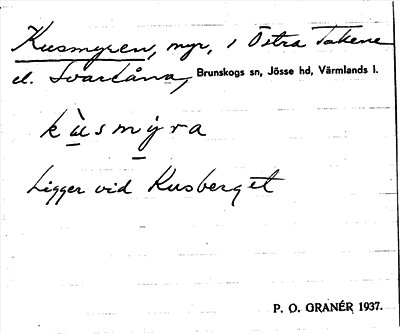 Kusmyren, myr, i Östra Takene
el. Svartåna, Brunskogs sn, Jösse hd, Värmlands l.
kùsmýra
Ligger vid Kusberget
P. O. GRANÉR 1937.